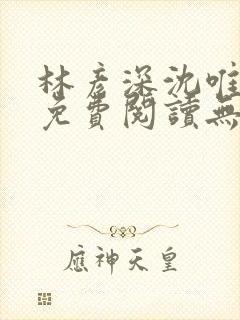 林彥深沈唯
免費閱讀無
應神天皇